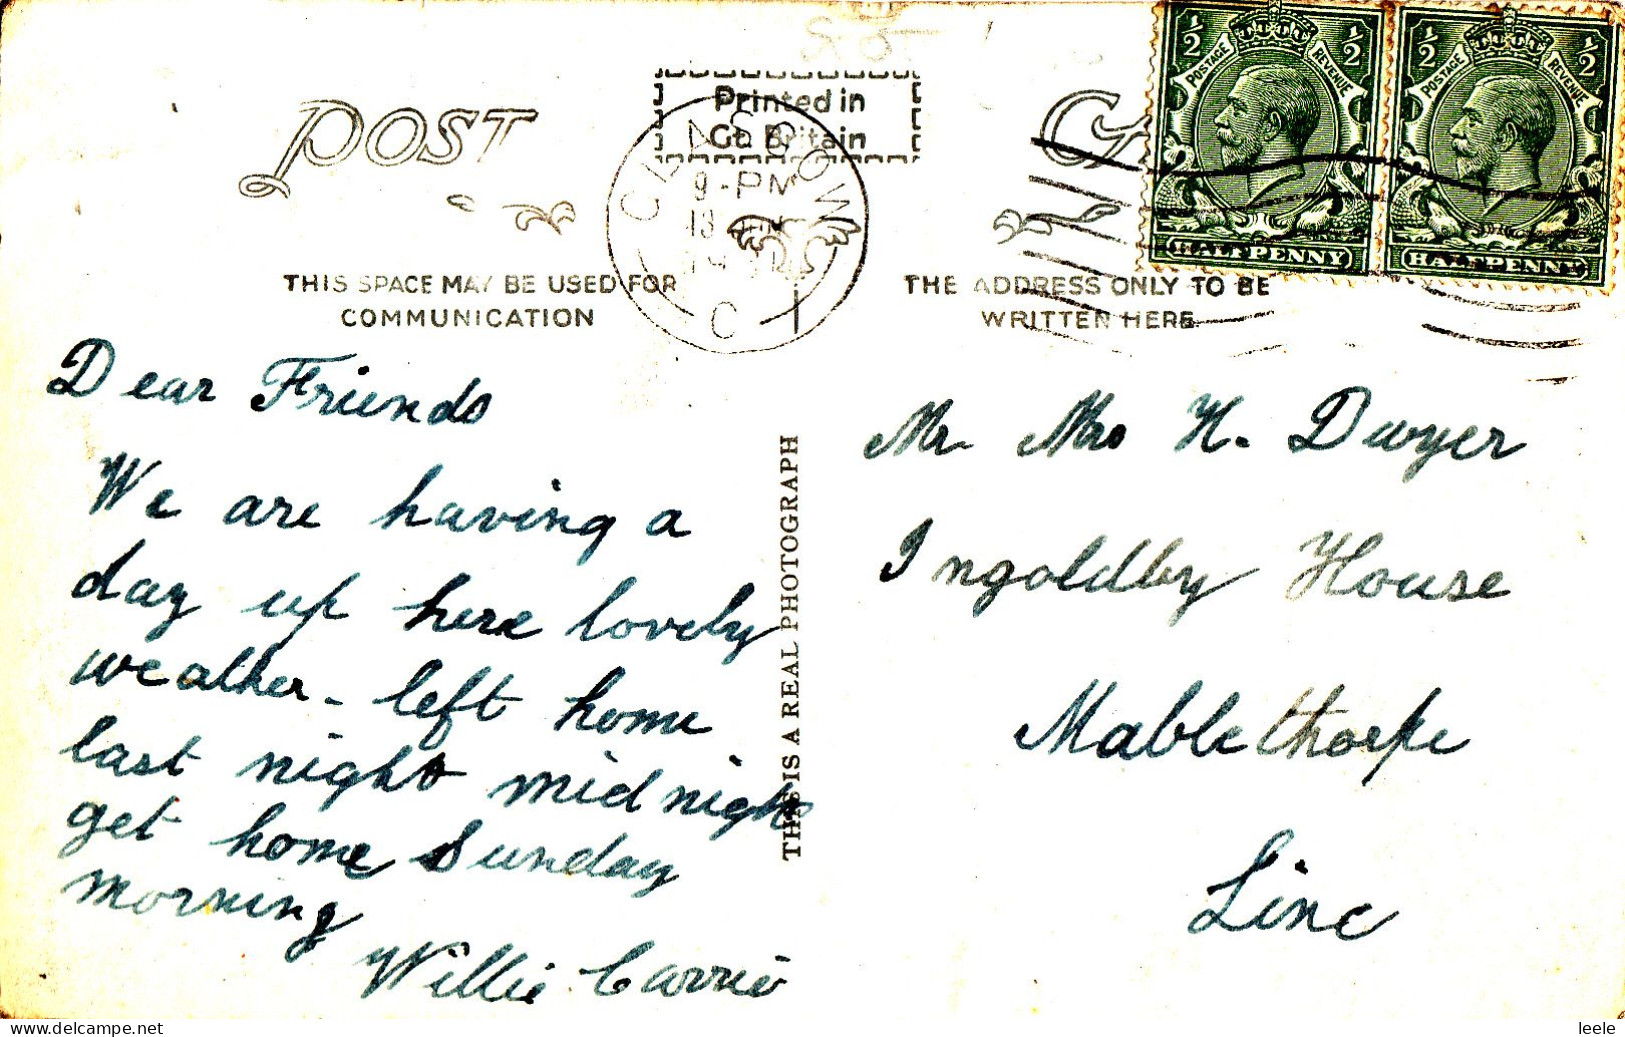 POST CA
Printed in
Gt. Britain
GLASGOW
9-PM
13
C 1
½ ½
POSTAGE REVENUE
HALFPENNY
½ ½
POSTAGE REVENUE
HALFPENNY
THIS SPACE MAY BE USED FOR
COMMUNICATION
THE ADDRESS ONLY TO BE
WRITTEN HERE
Dear Friends
We are having a
day up here lovely
weather - left home
last night midnight
get home Sunday
morning
Willie Carrie
THIS IS A REAL PHOTOGRAPH
Mr Mrs H. Dwyer
Ingoldby House
Mablethorpe
Linc
delcampe.net
leele